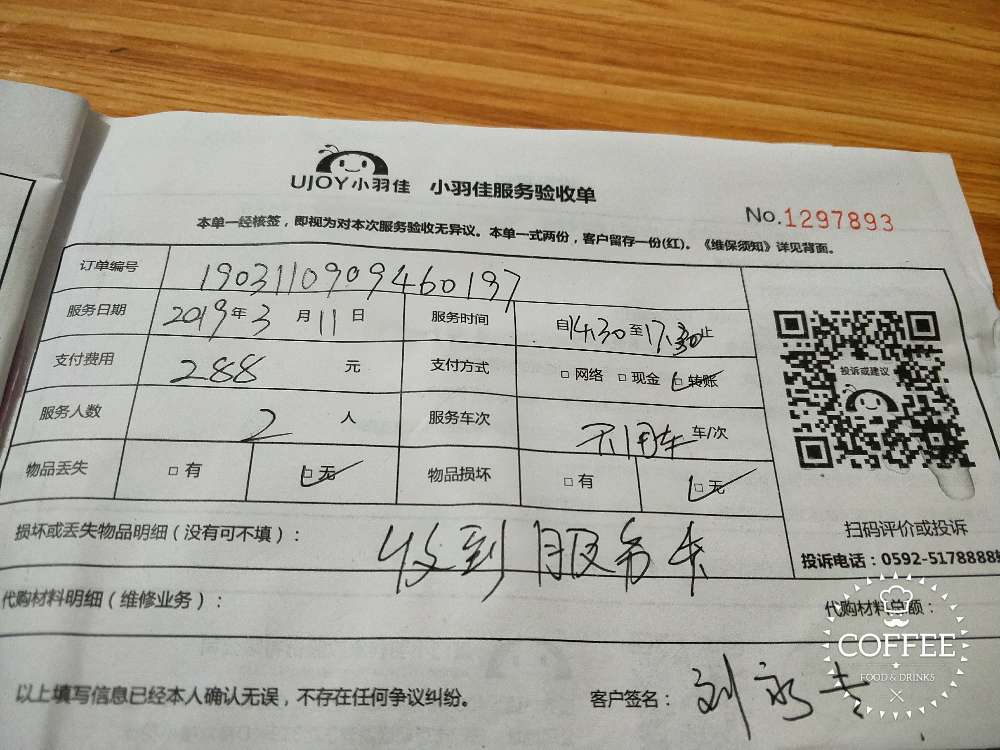 UJOY小羽佳 小羽佳服务验收单
No.1297893
本单一经核签，即视为对本次服务验收无异议。本单一式两份，客户留存一份(红)。《维保须知》详见背面。
订单编号 1903110909460197
服务日期 2019年3月11日 服务时间 自14:30至17:30止
支付费用 288 元 支付方式 □网络 □现金 □转账
投诉或建议
服务人数 2 人 服务车次 不用车 车/次
物品丢失 □有 □无 物品损坏 □有 □无
损坏或丢失物品明细（没有可不填）： 收到服务卡
扫码评价或投诉
投诉电话：0592-5178888
代购材料明细（维修业务）： 代购材料总额：
COFFEE
FOOD & DRINKS
以上填写信息已经本人确认无误，不存在任何争议纠纷。 客户签名： 刘永